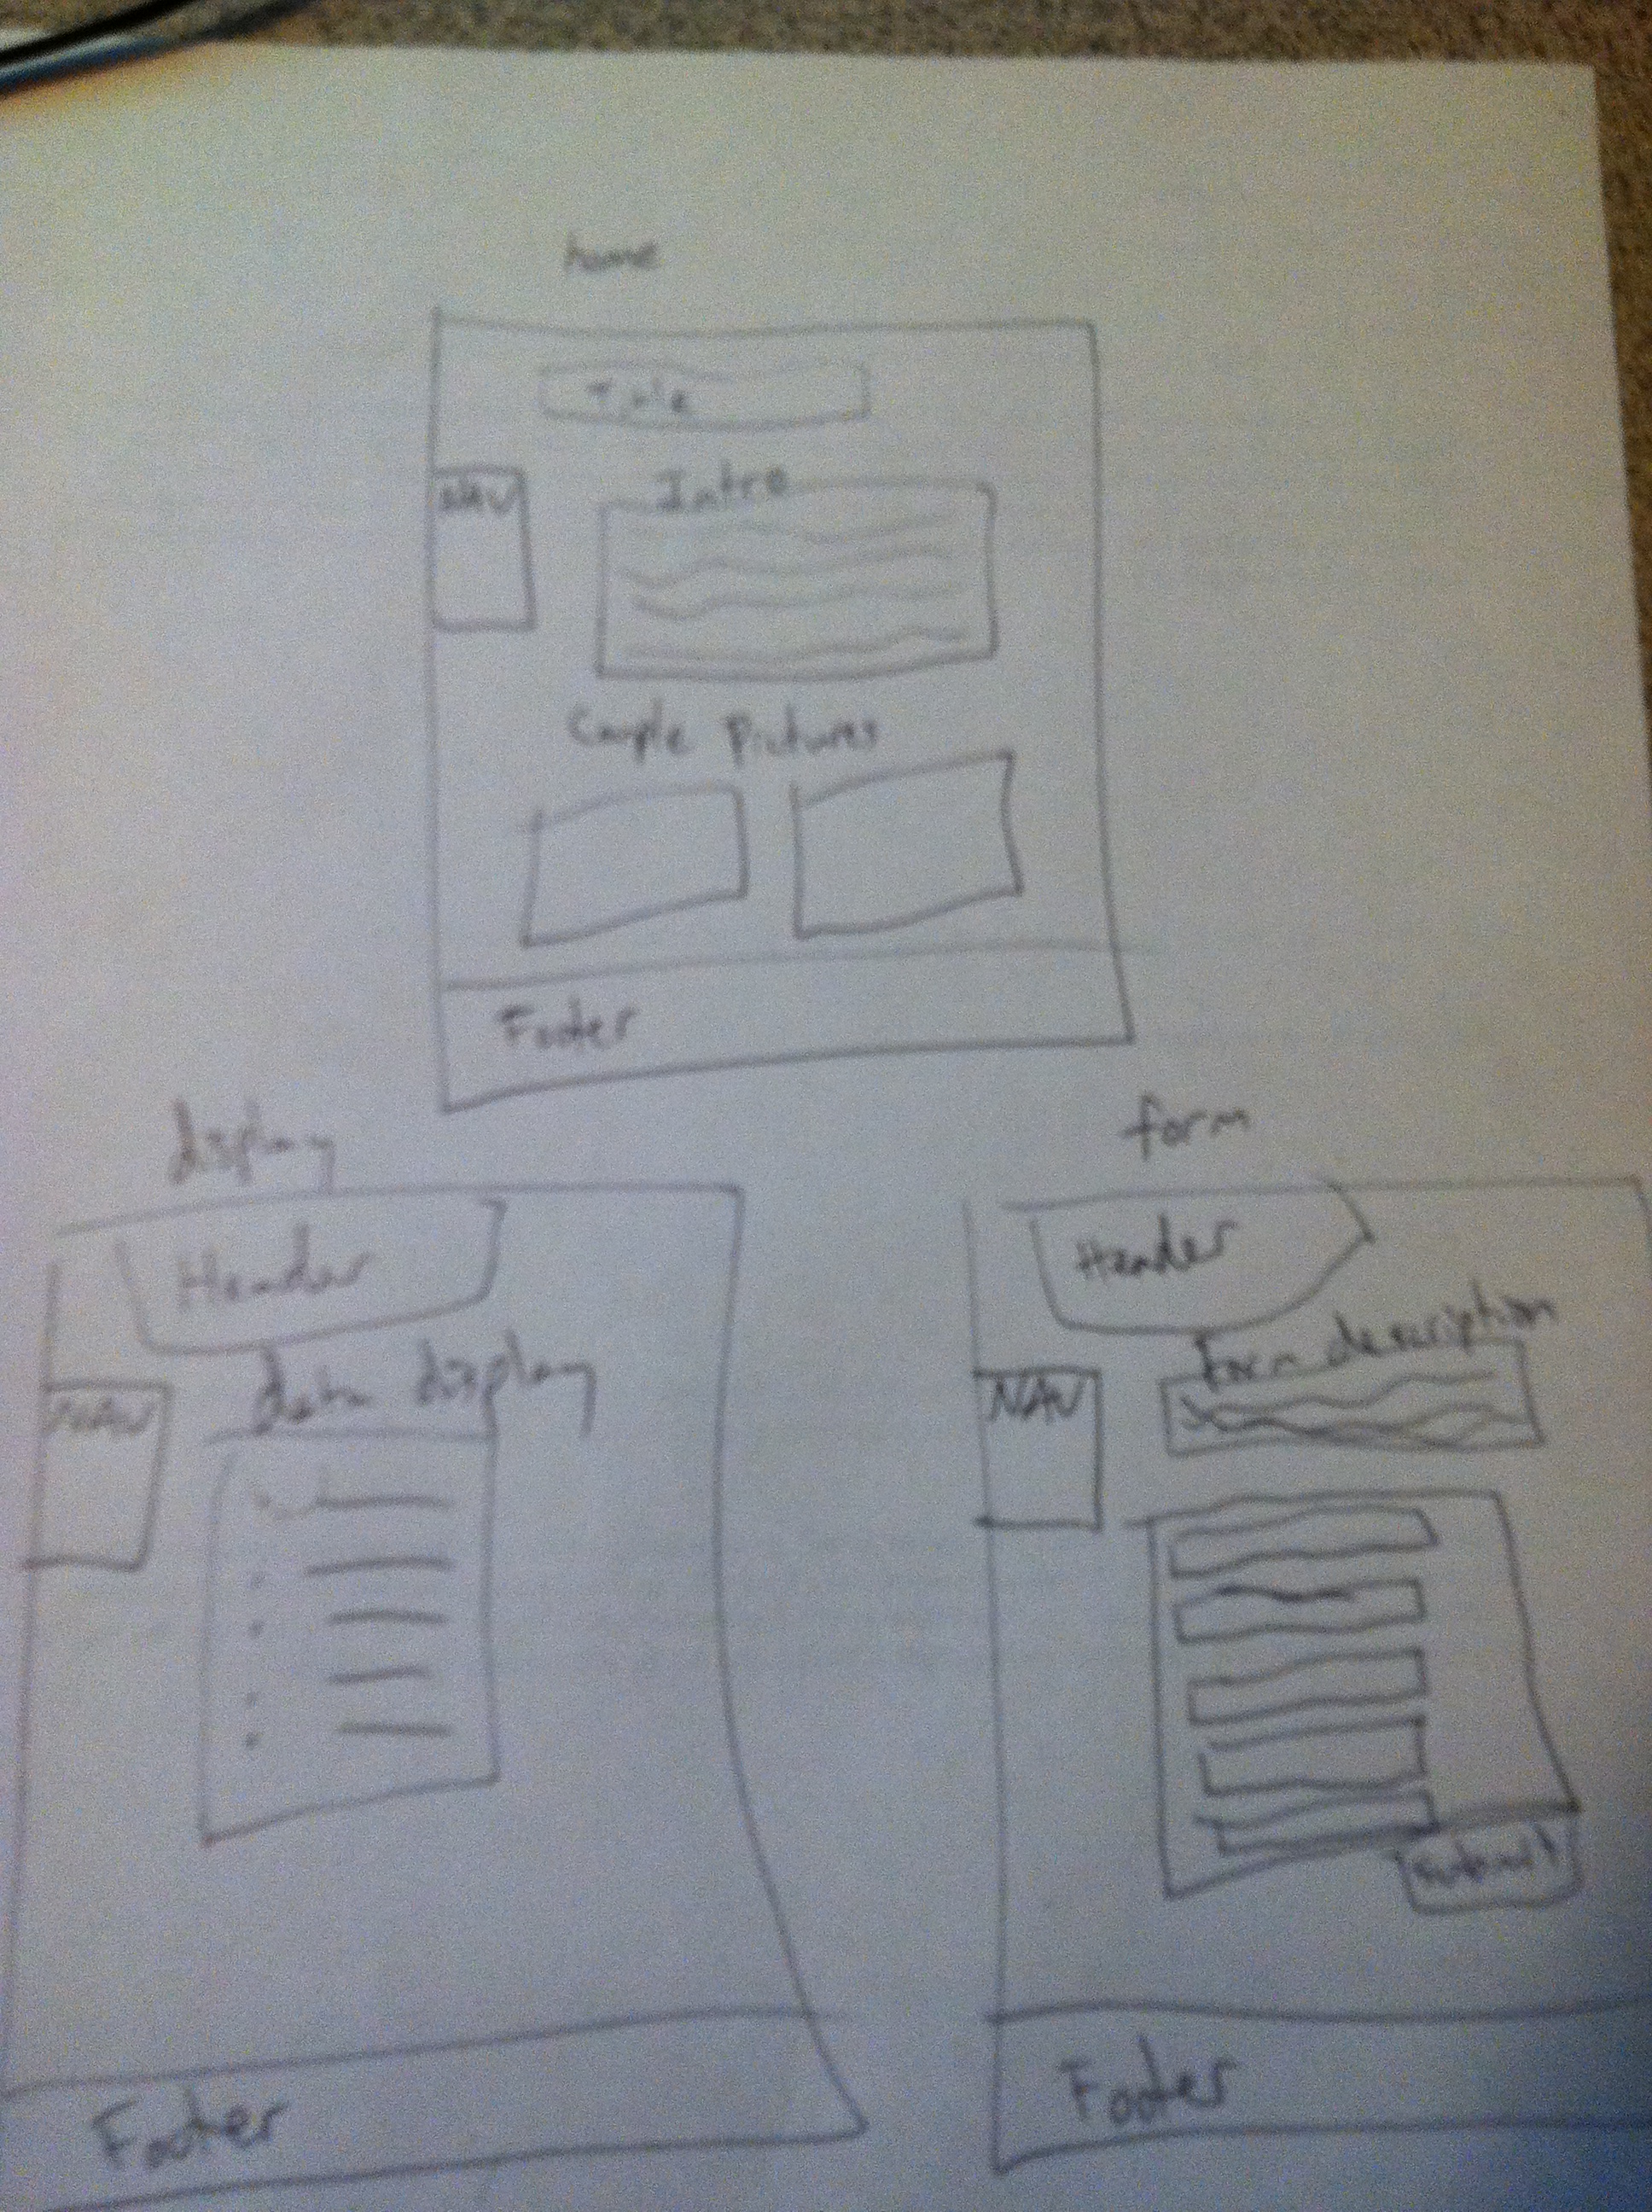 home
Title
NAV
Intro
Couple Pictures
Footer
display
Header
NAV
data display
Footer
form
Header
NAV
Form description
Submit
Footer